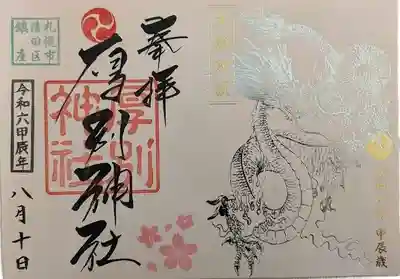 甲辰歳
奉拝
厚別神社
厚別
神社
札幌市
清田区
鎮座
令和六甲辰年
八月十日